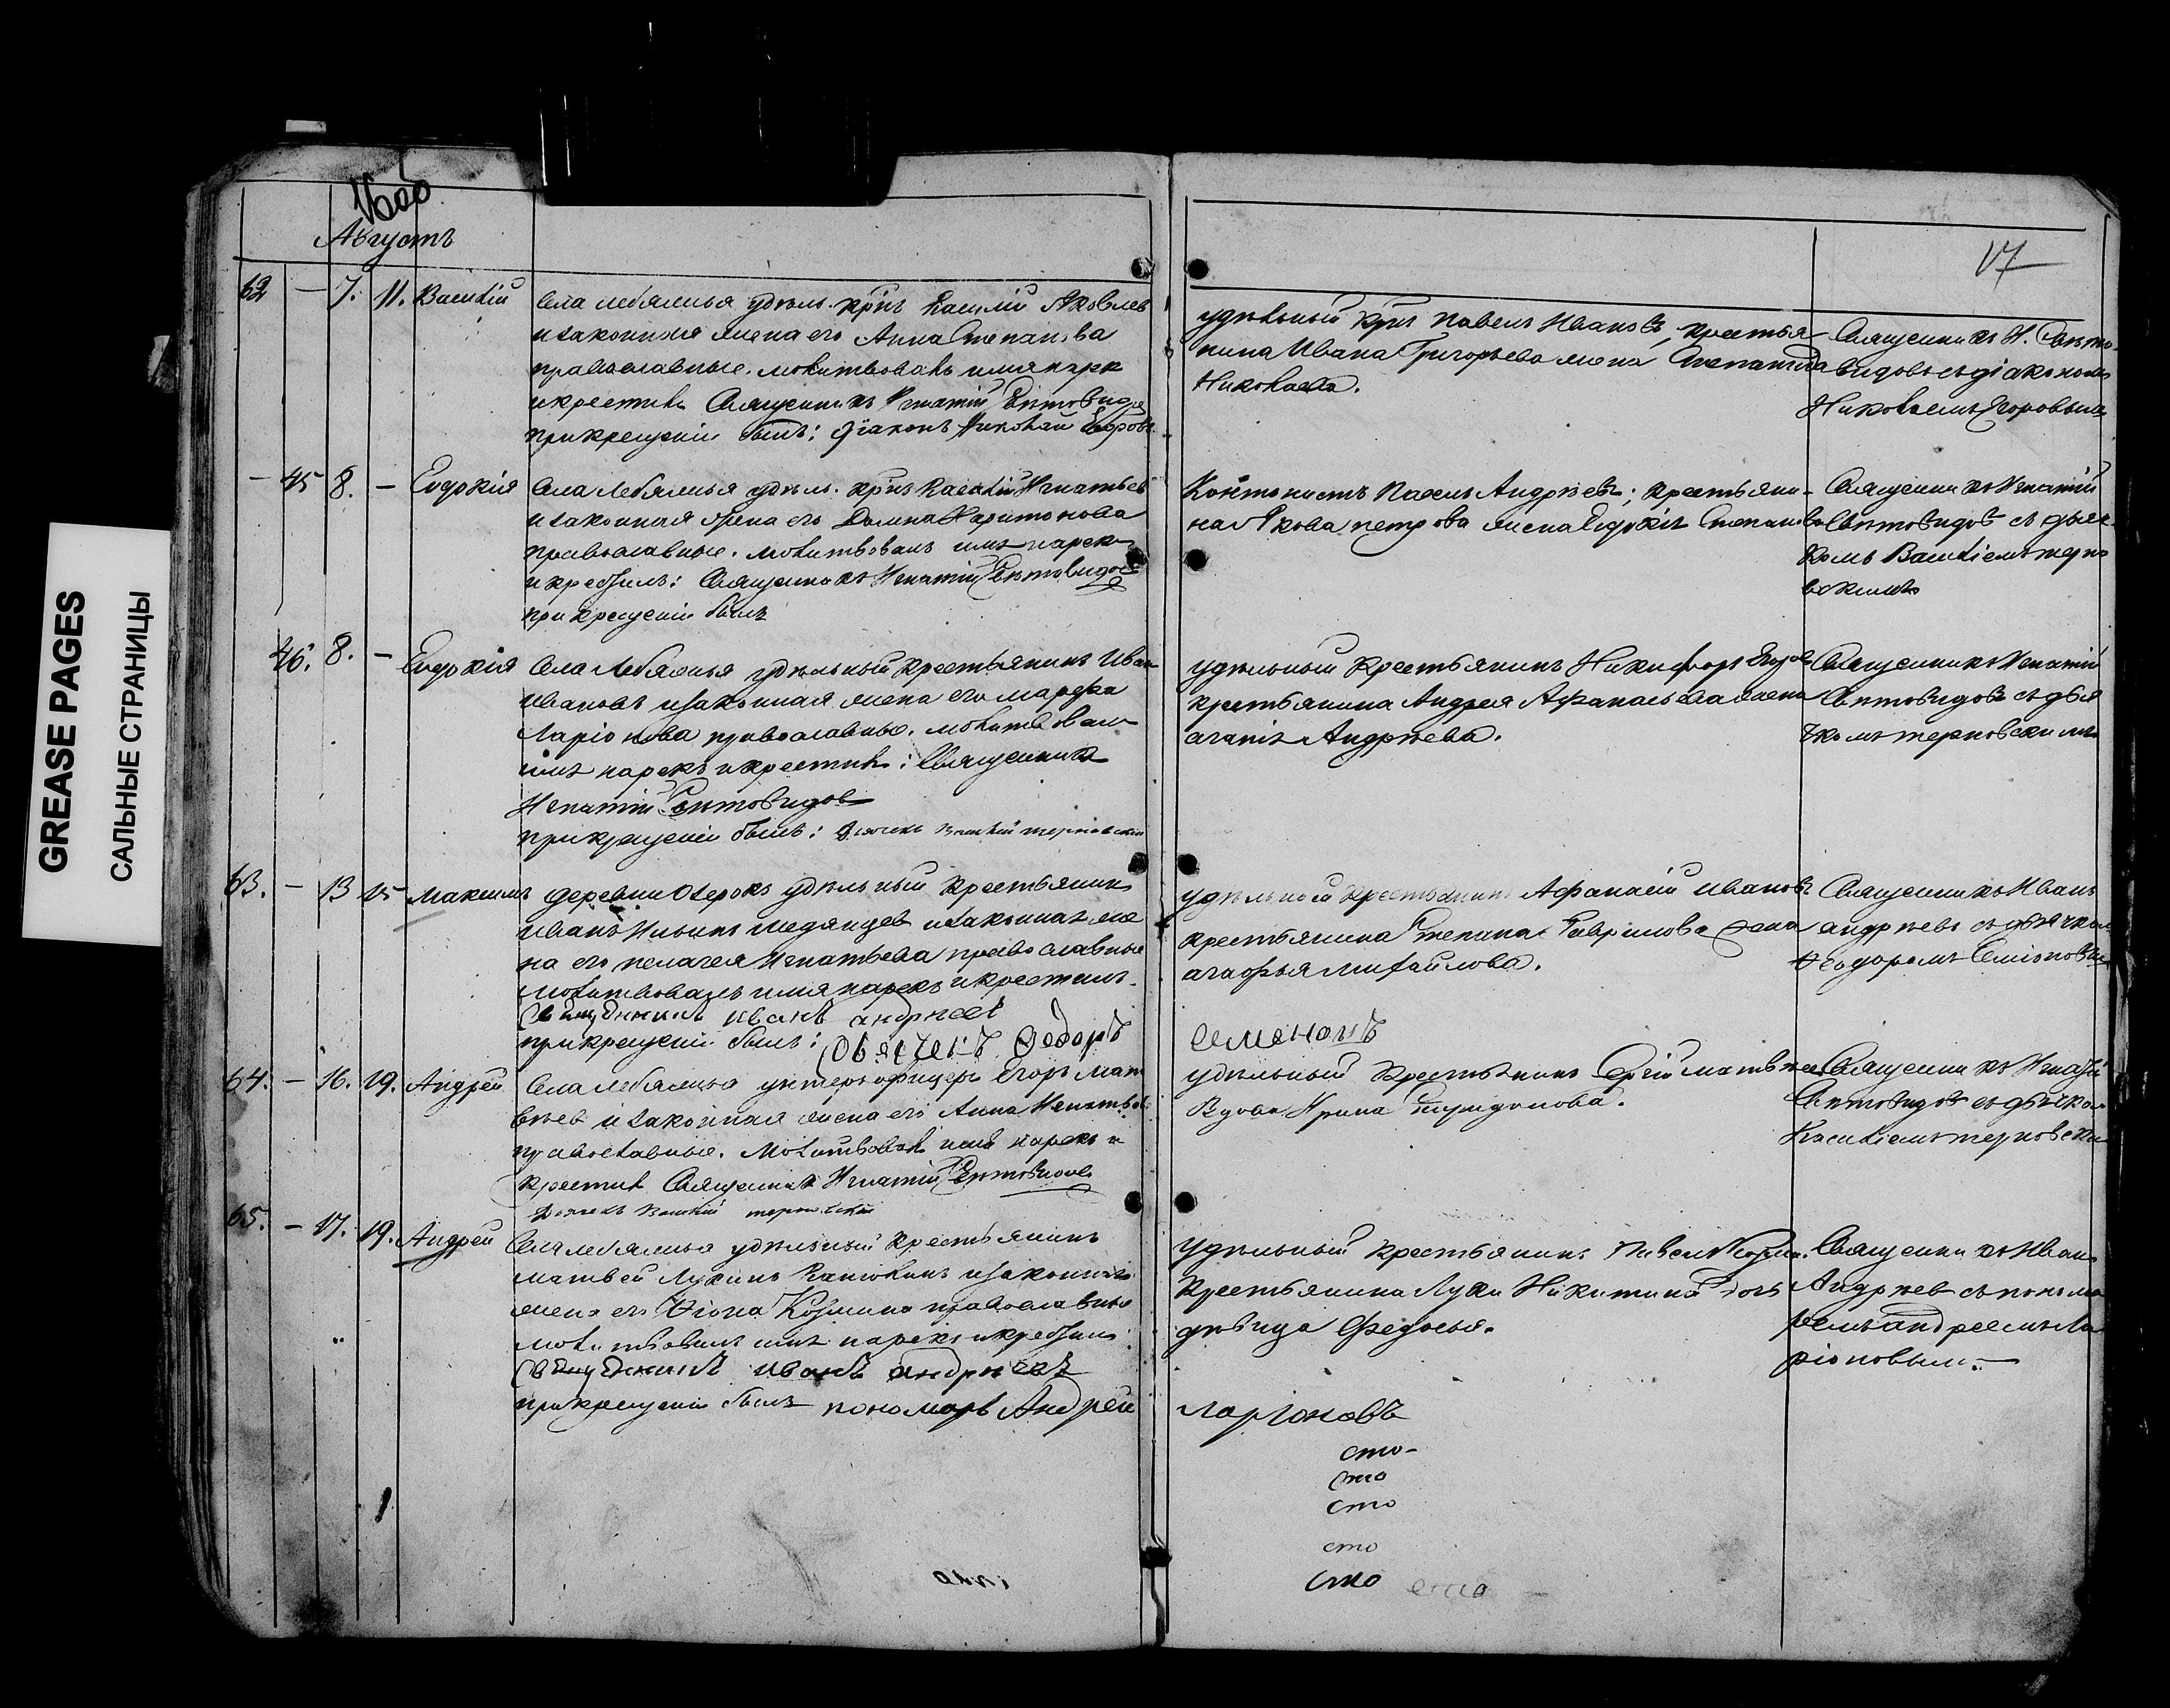 GREASE PAGES
САЛЬНЫЕ СТРАНИЦЫ
Августъ
17
62 — 7. 11. Василій
Села лебяжья удѣль. крнъ Василій Яковлев
и законная жена его Анна Степанова
православные. молитвовалъ имя нарек
и крестилъ Священникъ Игнатій Свѣтовидов
при крещеніи былъ: Діаконъ Николай Егоровъ
удѣльный крнъ Павелъ Ивановъ, крестья-
нина Ивана Григорьева жена Степанида
Николаева.
Священникъ И. Свѣто-
видовъ съ діакономъ
Николаемъ Егоровымъ
— 45 8. — Евдокія
Села Лебяжья удѣль. крнъ Василій Игнатьев
и законная жена его Домна Харитонова
православные. молитвовалъ имя нарекъ
и крестилъ: Священникъ Игнатій Свѣтовидов
при крещеніи былъ
Кантонистъ Павелъ Андрѣевъ; крестьяни-
на Якова петрова жена Евдокія Степанова
Священникъ Игнатій
Свѣтовидовъ съ дьяч-
комъ Василіемъ терно-
вскимъ
46. 8. — Евдокія
Села Лебяжья удѣльный крестьянинъ Иван
Ивановъ и законная жена его марфа
Ларіонова православные. молитвовалъ
имя нарекъ и крестилъ: Священникъ
Игнатій Свѣтовидов
при крещеніи былъ: Дьячекъ Василій терновскій
удѣльный крестьянинъ Никифоръ Егоров
крестьянина Андрея Афанасьева жена
Андрѣева.
Священникъ Игнатій
Свѣтовидовъ съ дья
чкомъ терновскимъ
63. — 13 15 Максимъ
деревни Озерокъ удѣльный крестьянинъ
иванъ Ильинъ и законная же
на его пелагея Игнатьева православные
молитвовалъ имя нарекъ и крестилъ
Священникъ иванъ андрѣевъ
при крещеніи былъ: Дьячекъ Федоръ
удѣльный крестьянинъ Афанасій Ивановъ
крестьянина Степана Гаврилова жена
агафья михайлова.
семеновъ
Священникъ Иванъ
андрѣевъ съ дьячкомъ
Ѳеодоромъ Семіоновым
64. — 16. 19. Андрей
Села лебяжья унтеръ офицеръ Егоръ мат
вѣев и законная жена его Анна Игнатьева
православные. Молитвовалъ имя нарекъ и
крестил Священникъ Игнатій Свѣтовидов
Дьячекъ Василій терновскій
удѣльный крестьянинъ Сергій матвѣев
Вдова Ирина Спиридонова.
Священникъ Игнатій
Свѣтовидовъ съ дьячкомъ
Василіемъ терновским
65. — 17. 19. Андрей
Села лебяжья удѣльный крестьянинъ
матвей Лукинъ и законная
жена его Козмина православные
молитвовалъ имя нарекъ и крестилъ
Священникъ иванъ андрѣевъ
при крещеніи былъ пономарь Андрей
Удѣльный крестьянинъ Павел
Крестьянина Луки Никитина дочь
дѣвица Федосья.
ларіоновъ
Священникъ Иван
Андрѣев съ понома
ремъ андреемъ Ла
ріоновым.
сто-
сто
сто
сто
сто
сто